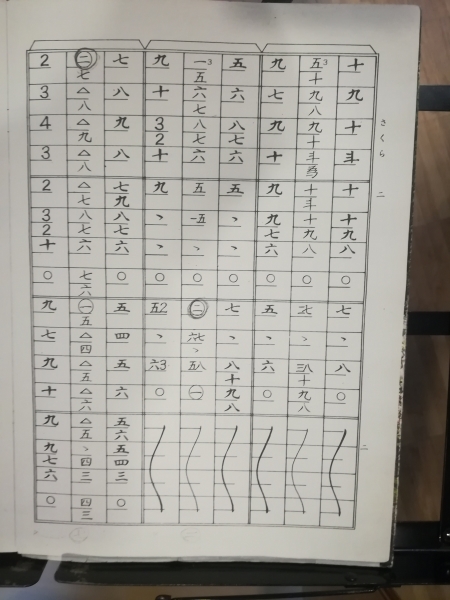 さくら 二
十 九 十 斗 十 十 九 八 ○ 七 ヽ 八 ○
五3 十 九 八 九 十 斗 為 十 斗 十 九 八 ○ 二七 ヽ 三八 十 九 八
九 七 九 十 九 九 七 六 ○ 五 ヽ 六 ○
五 六 八 七 六 五 ヽ ヽ ○ 七 ヽ 八 十 九 八
一3 五 六 七 八 七 六 五 一五 ヽ ○ ㊁ 六七 ヽ 五八 ㊀
九 十 3 2 十 九 ヽ ヽ ○ 五2 ヽ 六3 ○
七 八 九 八 七 九 八 七 六 ○ 五 四 五 六 五 六 五 四 三 ○
㊁ 七 △ 八 △ 九 △ 八 △ 七 八 七 六 七 六 ㊀ 五 △ 四 △ 五 △ 六 △ 五 ヽ 四 三 四 三
2 3 4 3 2 3 2 十 ○ 九 七 九 十 九 九 七 六 ○
二